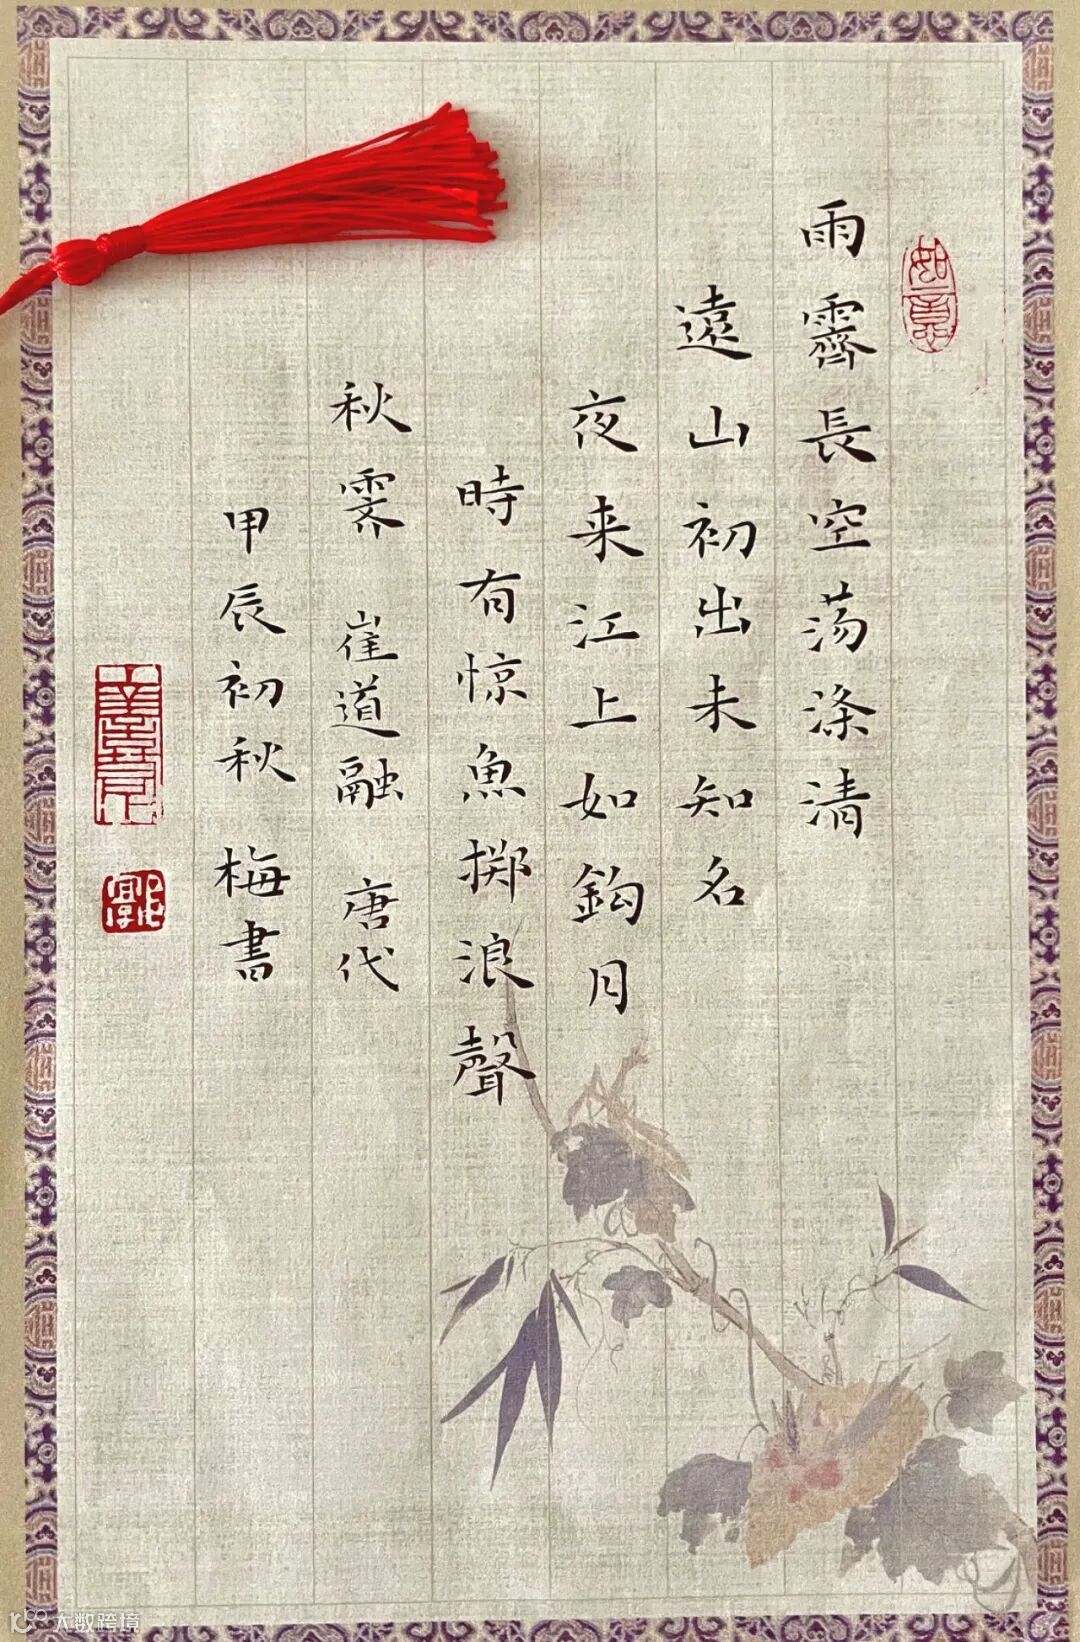 如意
雨霽長空荡涤清
遠山初出未知名
夜来江上如鈎月
時有惊魚掷浪聲
秋霁 崔道融 唐代
甲辰初秋 梅書
大数跨境